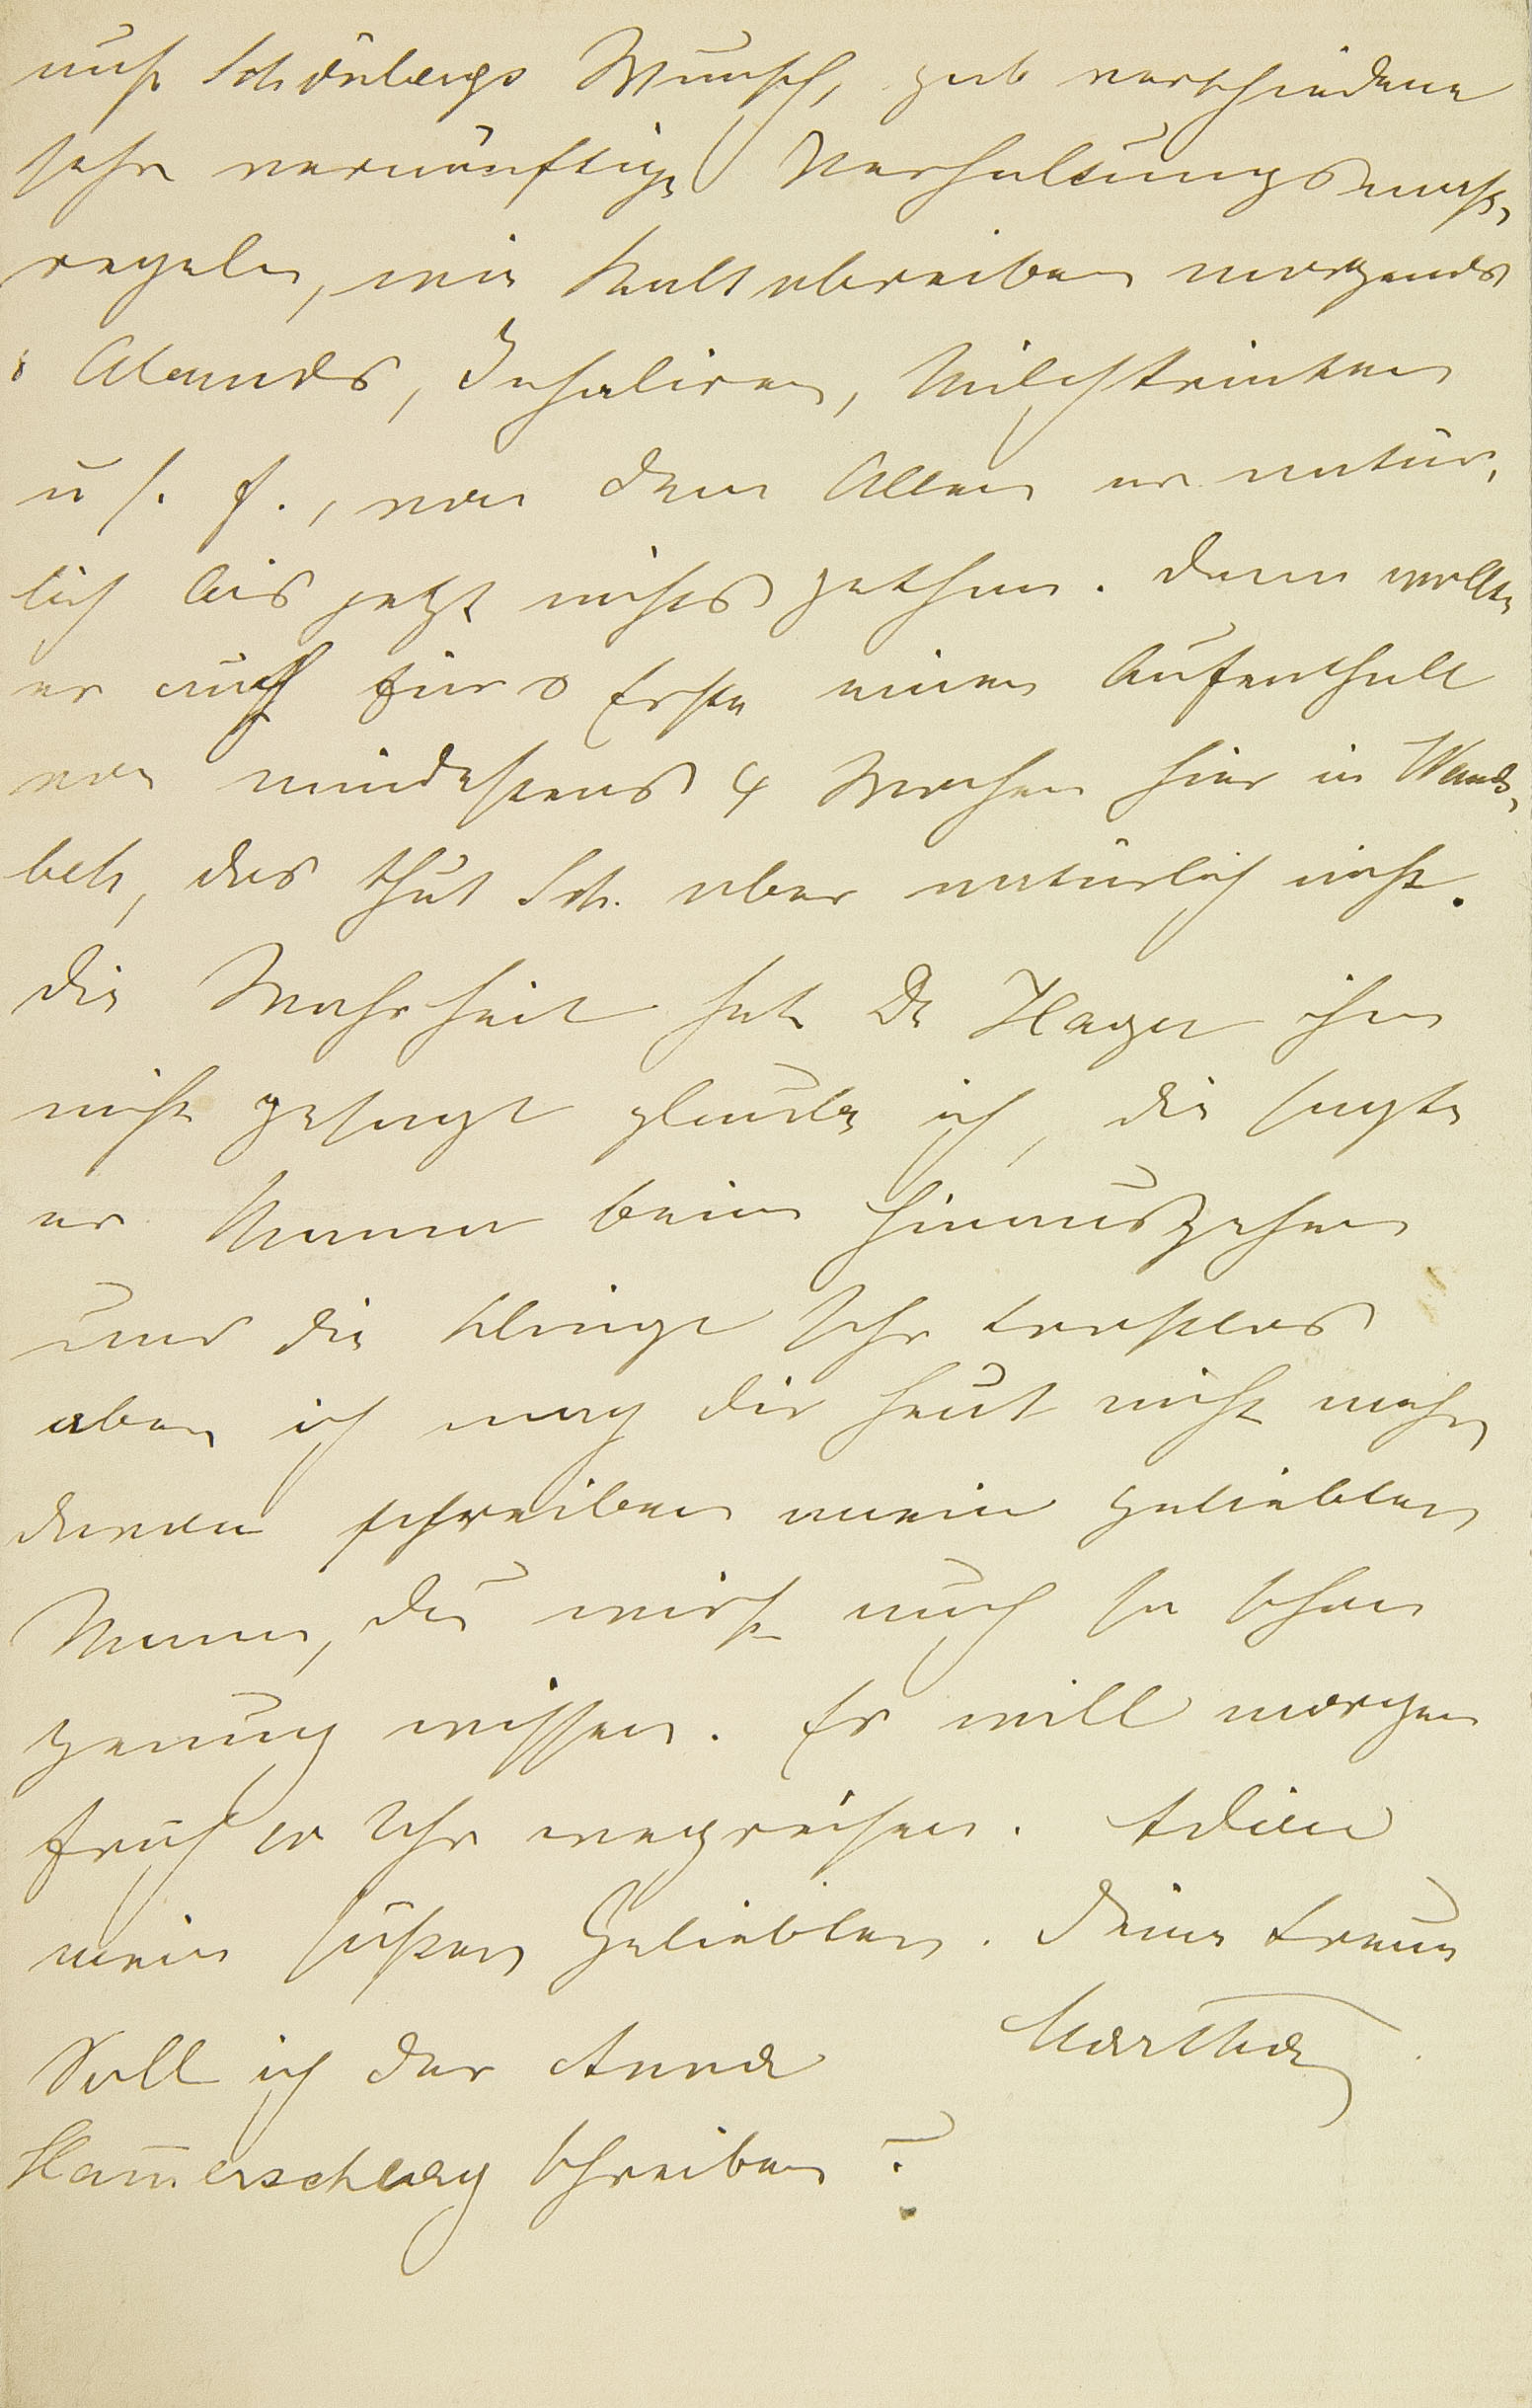 nicht Schönbergs Wunsch, gab verschiedene
sehr vernünftige Verhaltungsmaß-
regeln, wie Kaltabreiben morgends
& Abends, Inhaliren, Milchtrinken
u s. f., von dem Allen er natür-
lich bis jetzt nichts gethan. Dann wollte
er auch für's Erste einen Aufenthalt
von mindestens 4 Wochen hier in Wands-
bek, das thut Sch. aber natürlich nicht.
Die Wahrheit hat Dr Hager ihm
nicht gesagt glaube ich, die sagte
er Mama beim Hinausgehen
und die klingt sehr trostlos
aber ich mag Dir heut nicht mehr
davon schreiben mein geliebter
Mann, Du wirst auch so schon
genug wissen. Er will morgen
früh Uhr wegreisen. Adieu
mein süßer Geliebter. Deine treue
Martha
Soll ich der Anna
Ham̄erschlag schreiben?